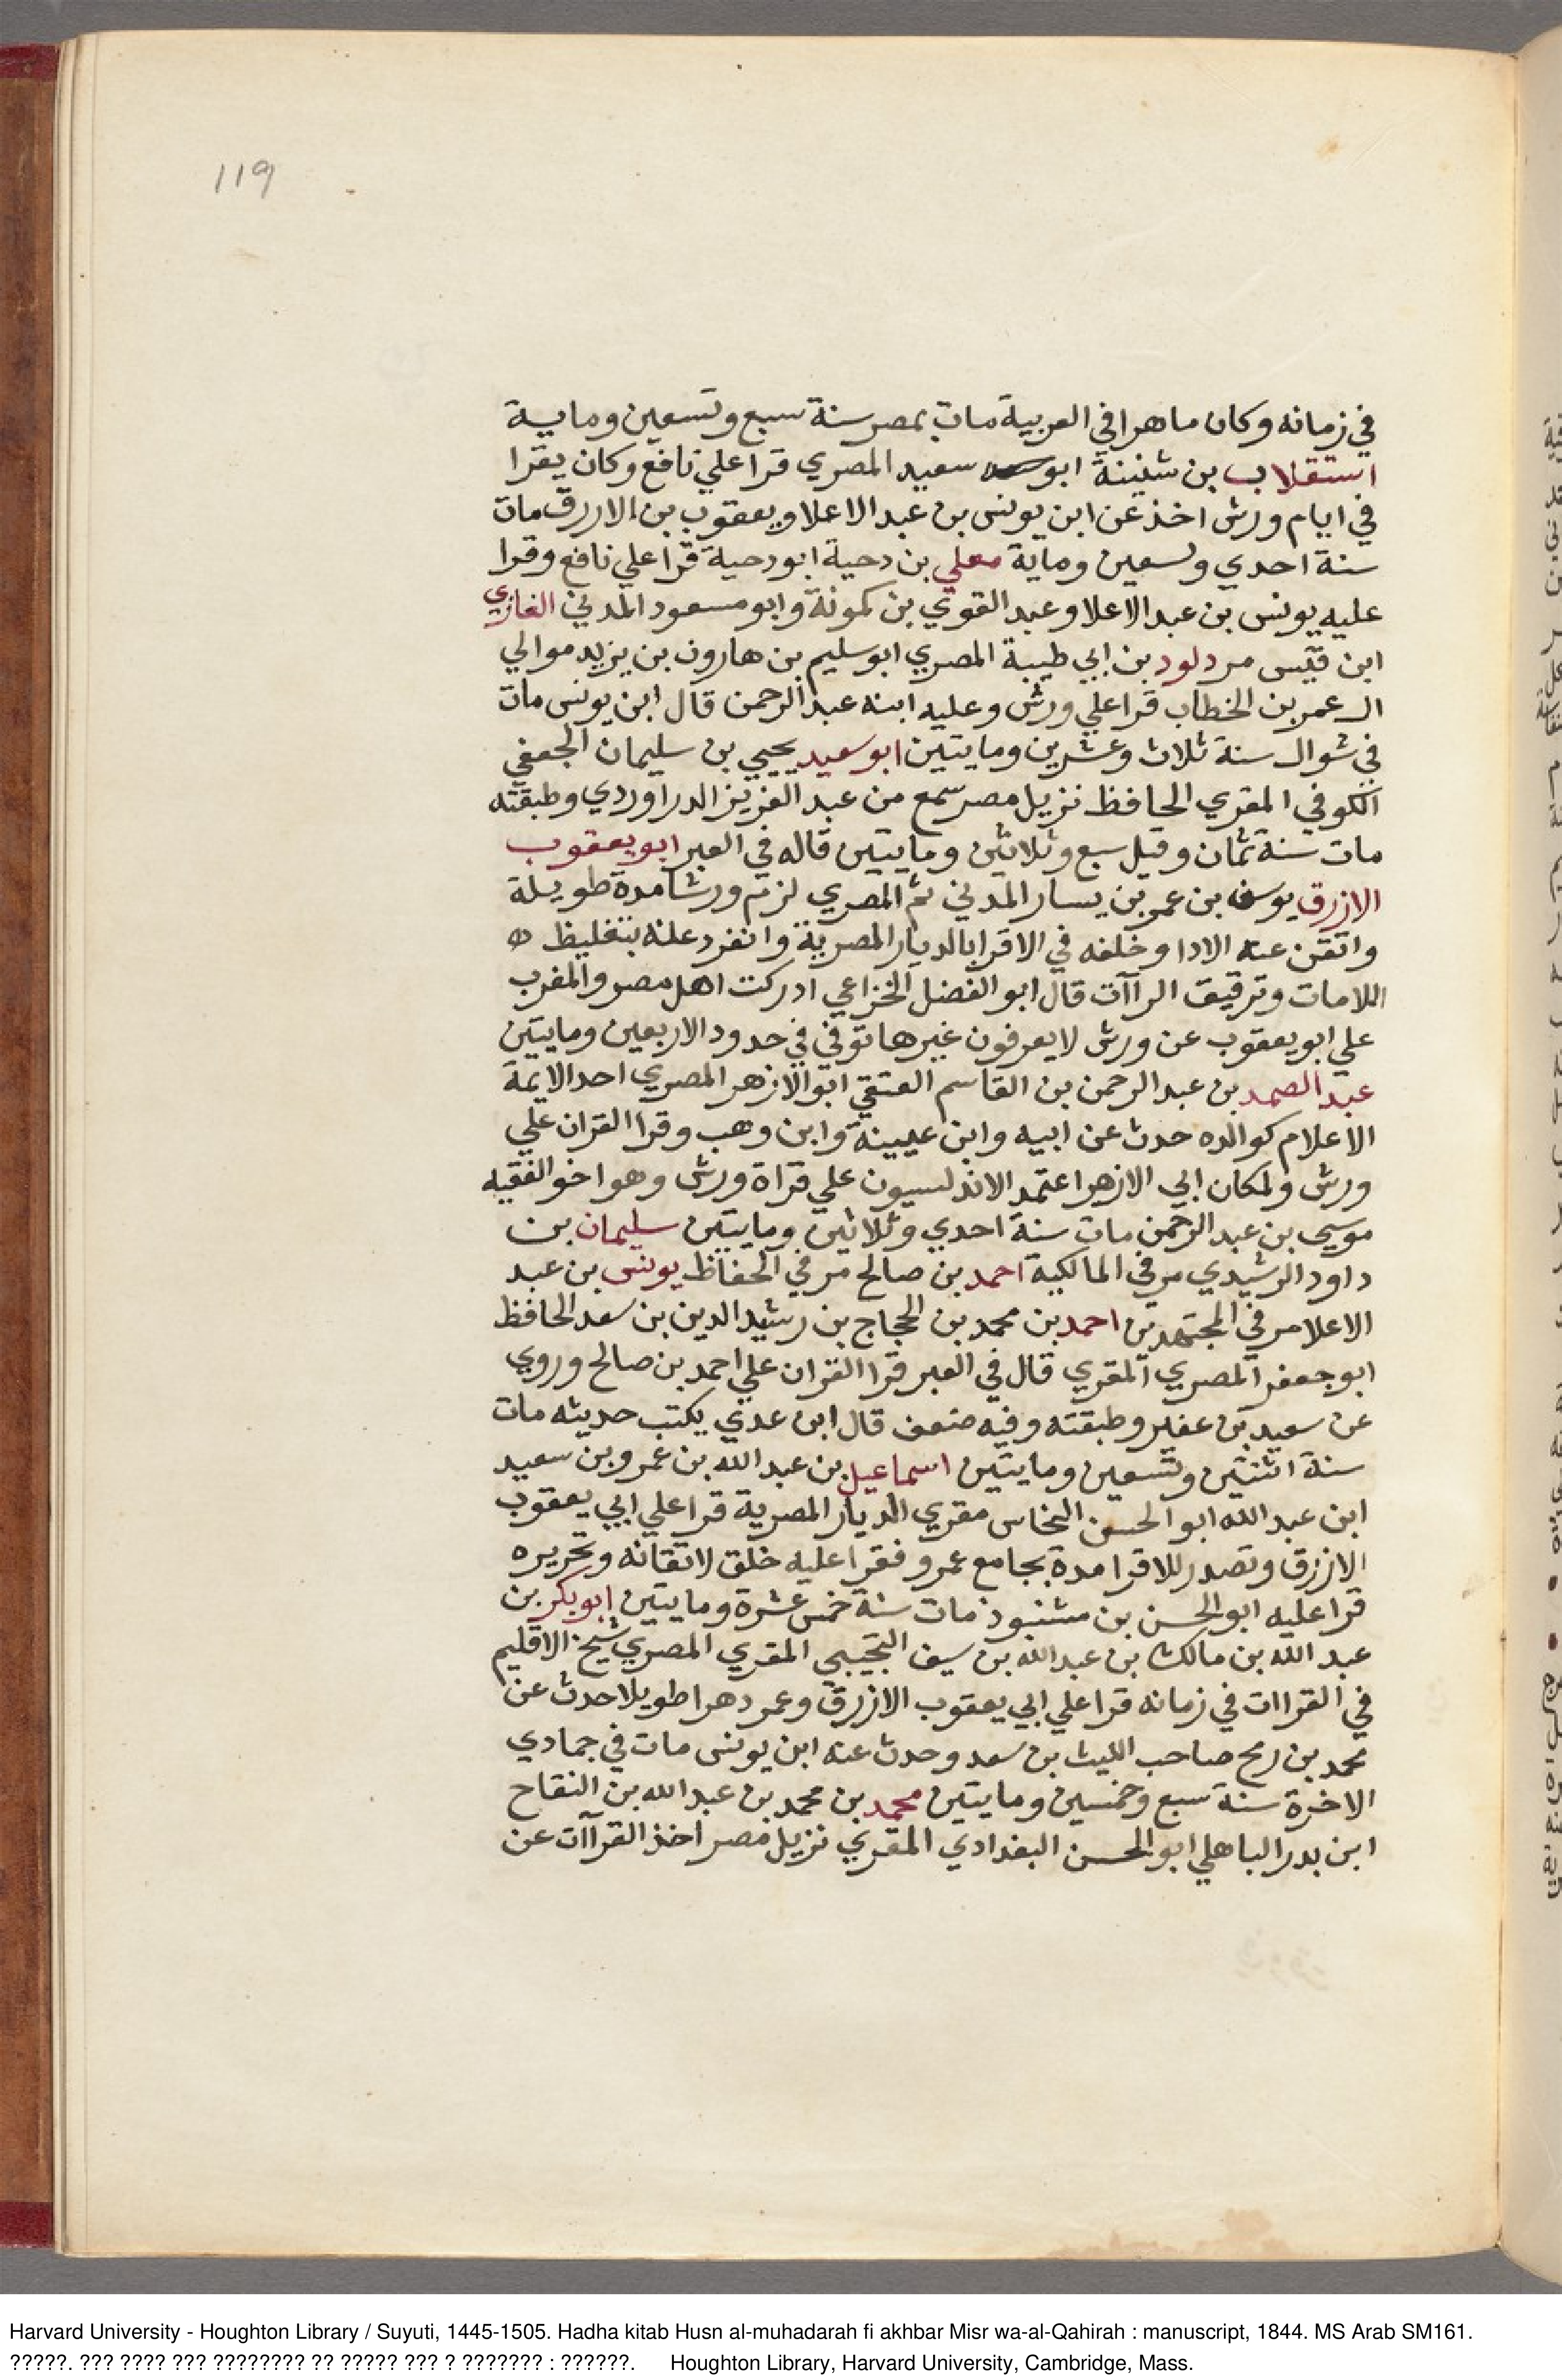 119
في زمانه وكان ماهرا في العربية مات بمصر سنة سبع وتسعين وماية
استقلاب بن شنينة ابو سعيد المصري قرا علي نافع وكان يقرا
في ايام ورش اخذ عن ابن يونس بن عبد الاعلا ويعقوب بن الازرق مات
سنة احدي وتسعين وماية معلي بن دحية ابو دحية قرا علي نافع وقرا
عليه يونس بن عبد الاعلا وعبد القوي بن كمونة وابو مسعود المدني الغازي
ابن قيس مر دلود بن ابي طيبة المصري ابو سليم بن هارون بن يزيد موالي
ال عمر بن الخطاب قرا علي ورش وعليه ابنه عبد الرحمن قال ابن يونس مات
في شوال سنة ثلاث وعشرين ومايتين ابو سعيد يحيي بن سليمان الجعفي
الكوفي المقري الحافظ نزيل مصر سمع من عبد العزيز الدراوردي وطبقته
مات سنة ثمان وقيل سبع وثلاثين ومايتين قاله في العبر ابو يعقوب
الازرق يوسف بن عمر بن يسار المدني ثم المصري لزم ورشا مدة طويلة
واتقن عنه الادا وخلفه في الاقرا بالديار المصرية وانفرد عنه بتغليظ
اللامات وترقيق الراآت قال ابو الفضل الخزاعي ادركت اهل مصر والمغرب
علي ابو يعقوب عن ورش لا يعرفون غيرها توفي في حدود الاربعين ومايتين
عبد الصمد بن عبد الرحمن بن القاسم العتقي ابو الازهر المصري احد الايمة
الاعلام كوالده حدث عن ابيه وابن عيينة وابن وهب وقرا القران علي
ورش ولمكان ابي الازهر اعتمد الاندلسيون علي قراة ورش وهو اخو الفقيه
موسي بن عبد الرحمن مات سنة احدي وثلاثين ومايتين سليمان بن
داود الرشيدي مر في المالكية احمد بن صالح مر في الحفاظ يونس بن عبد
الاعلا مر في المجتهدين احمد بن محمد بن الحجاج بن رشيد الدين بن سعد الحافظ
ابو جعفر المصري المقري قال في العبر قرا القران علي احمد بن صالح وروي
عن سعيد بن عفير وطبقته وفيه ضعف قال ابن عدي يكتب حديثه مات
سنة اثنتين وتسعين ومايتين اسماعيل بن عبد الله بن عمرو بن سعيد
ابن عبد الله ابو الحسن النخاس مقري الديار المصرية قرا علي ابي يعقوب
الازرق وتصدر للاقرا مدة بجامع عمرو فقرا عليه خلق لاتقانه وتحريره
قرا عليه ابو الحسن بن مشنبوذ مات سنة خمس عشرة ومايتين ابو بكر بن
عبد الله بن مالك بن عبد الله بن سيف التجيبي المقري المصري شيخ الاقليم
في القراات في زمانه قرا علي ابي يعقوب الازرق وعمر دهرا طويلا حدث عن
محمد بن رمح صاحب الليث بن سعد وحدث عنه ابن يونس مات في جمادي
الاخرة سنة سبع وخمسين ومايتين محمد بن محمد بن عبد الله بن النقاح
ابن بدر الباهلي ابو الحسن البغدادي المقري نزيل مصر اخذ القراآت عن
Harvard University - Houghton Library / Suyuti, 1445-1505. Hadha kitab Husn al-muhadarah fi akhbar Misr wa-al-Qahirah : manuscript, 1844. MS Arab SM161.
?????. ??? ???? ??? ???????? ?? ????? ??? ? ??????? : ??????. Houghton Library, Harvard University, Cambridge, Mass.